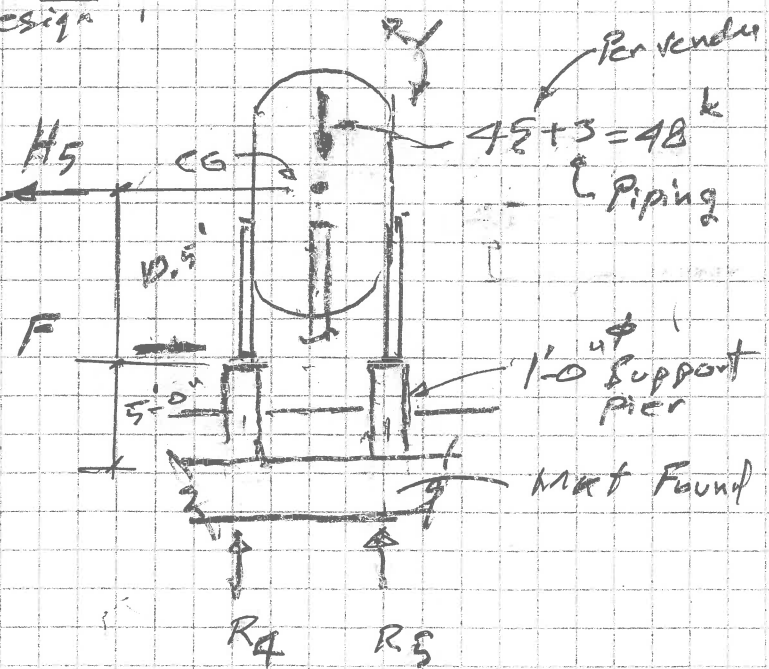 esign
Per vendu
H5
CG
45+3=48 k
Piping
10.5'
F
1'-0"φ
Support
pier
5'-0"
Mat Found
R4
R5